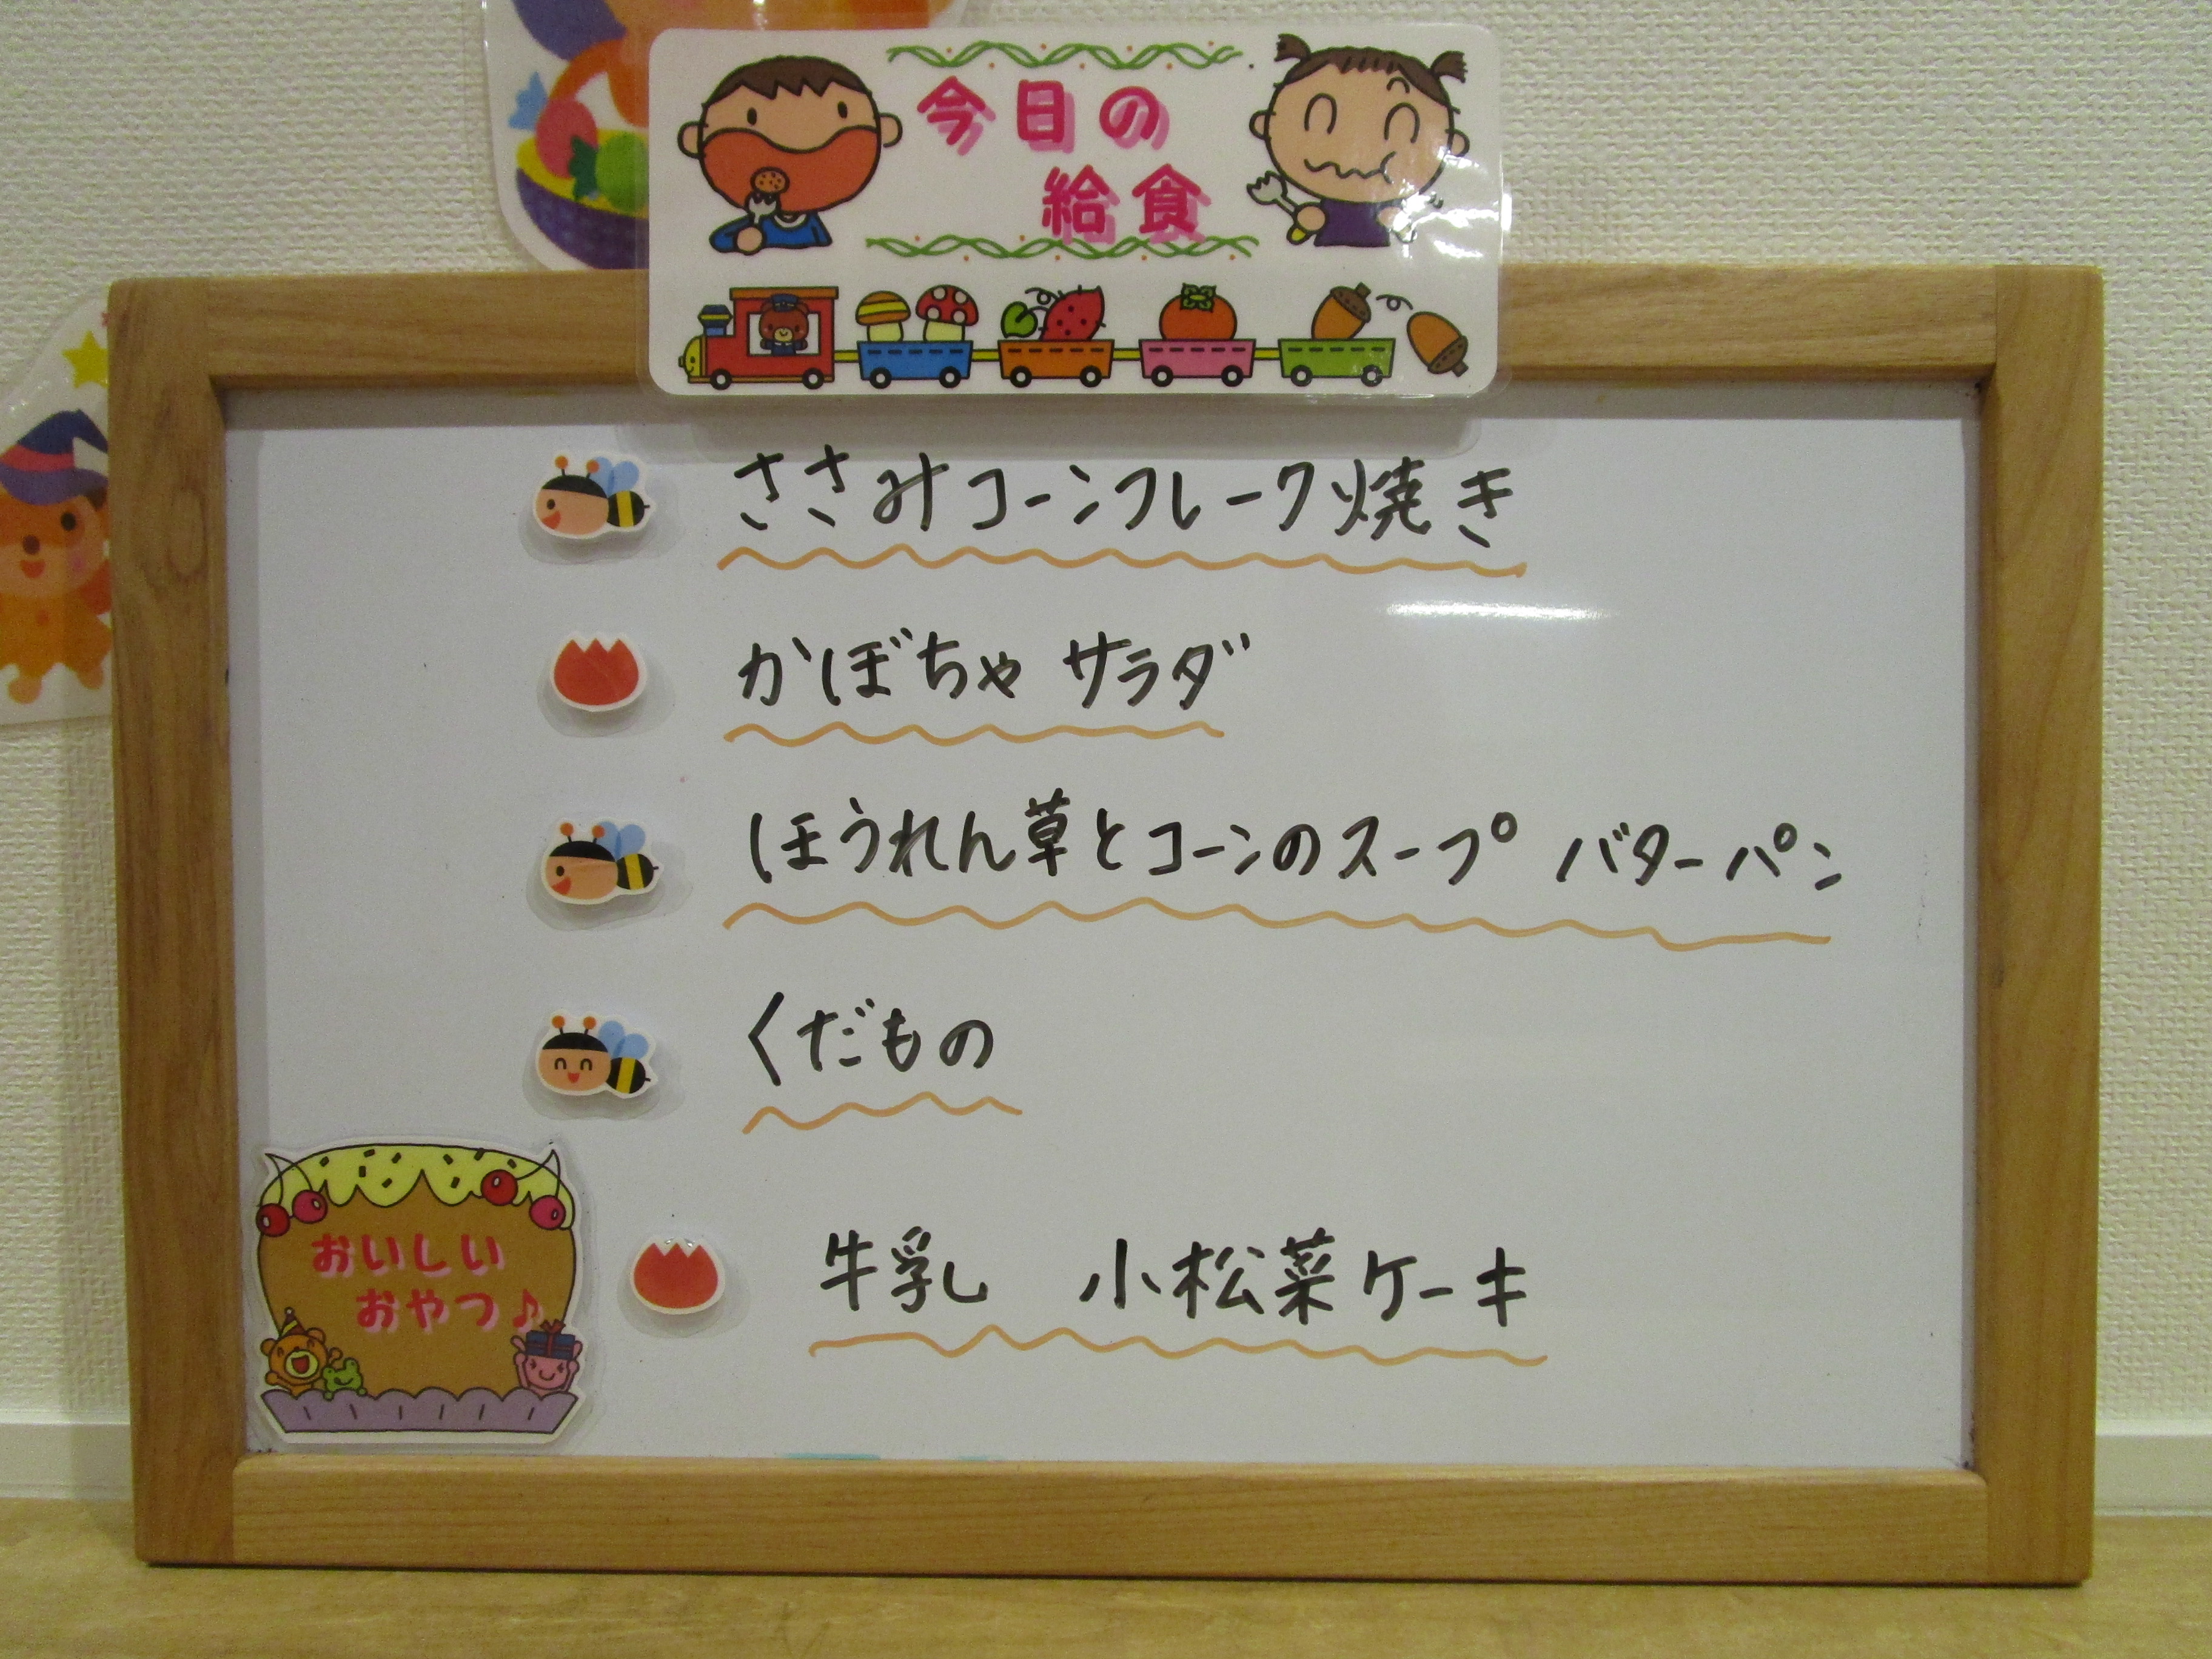 今日の
給食
ささみコーンフレーク焼き
かぼちゃサラダ
ほうれん草とコーンのスープ バターパン
くだもの
おいしい
おやつ♪
牛乳 小松菜ケーキ